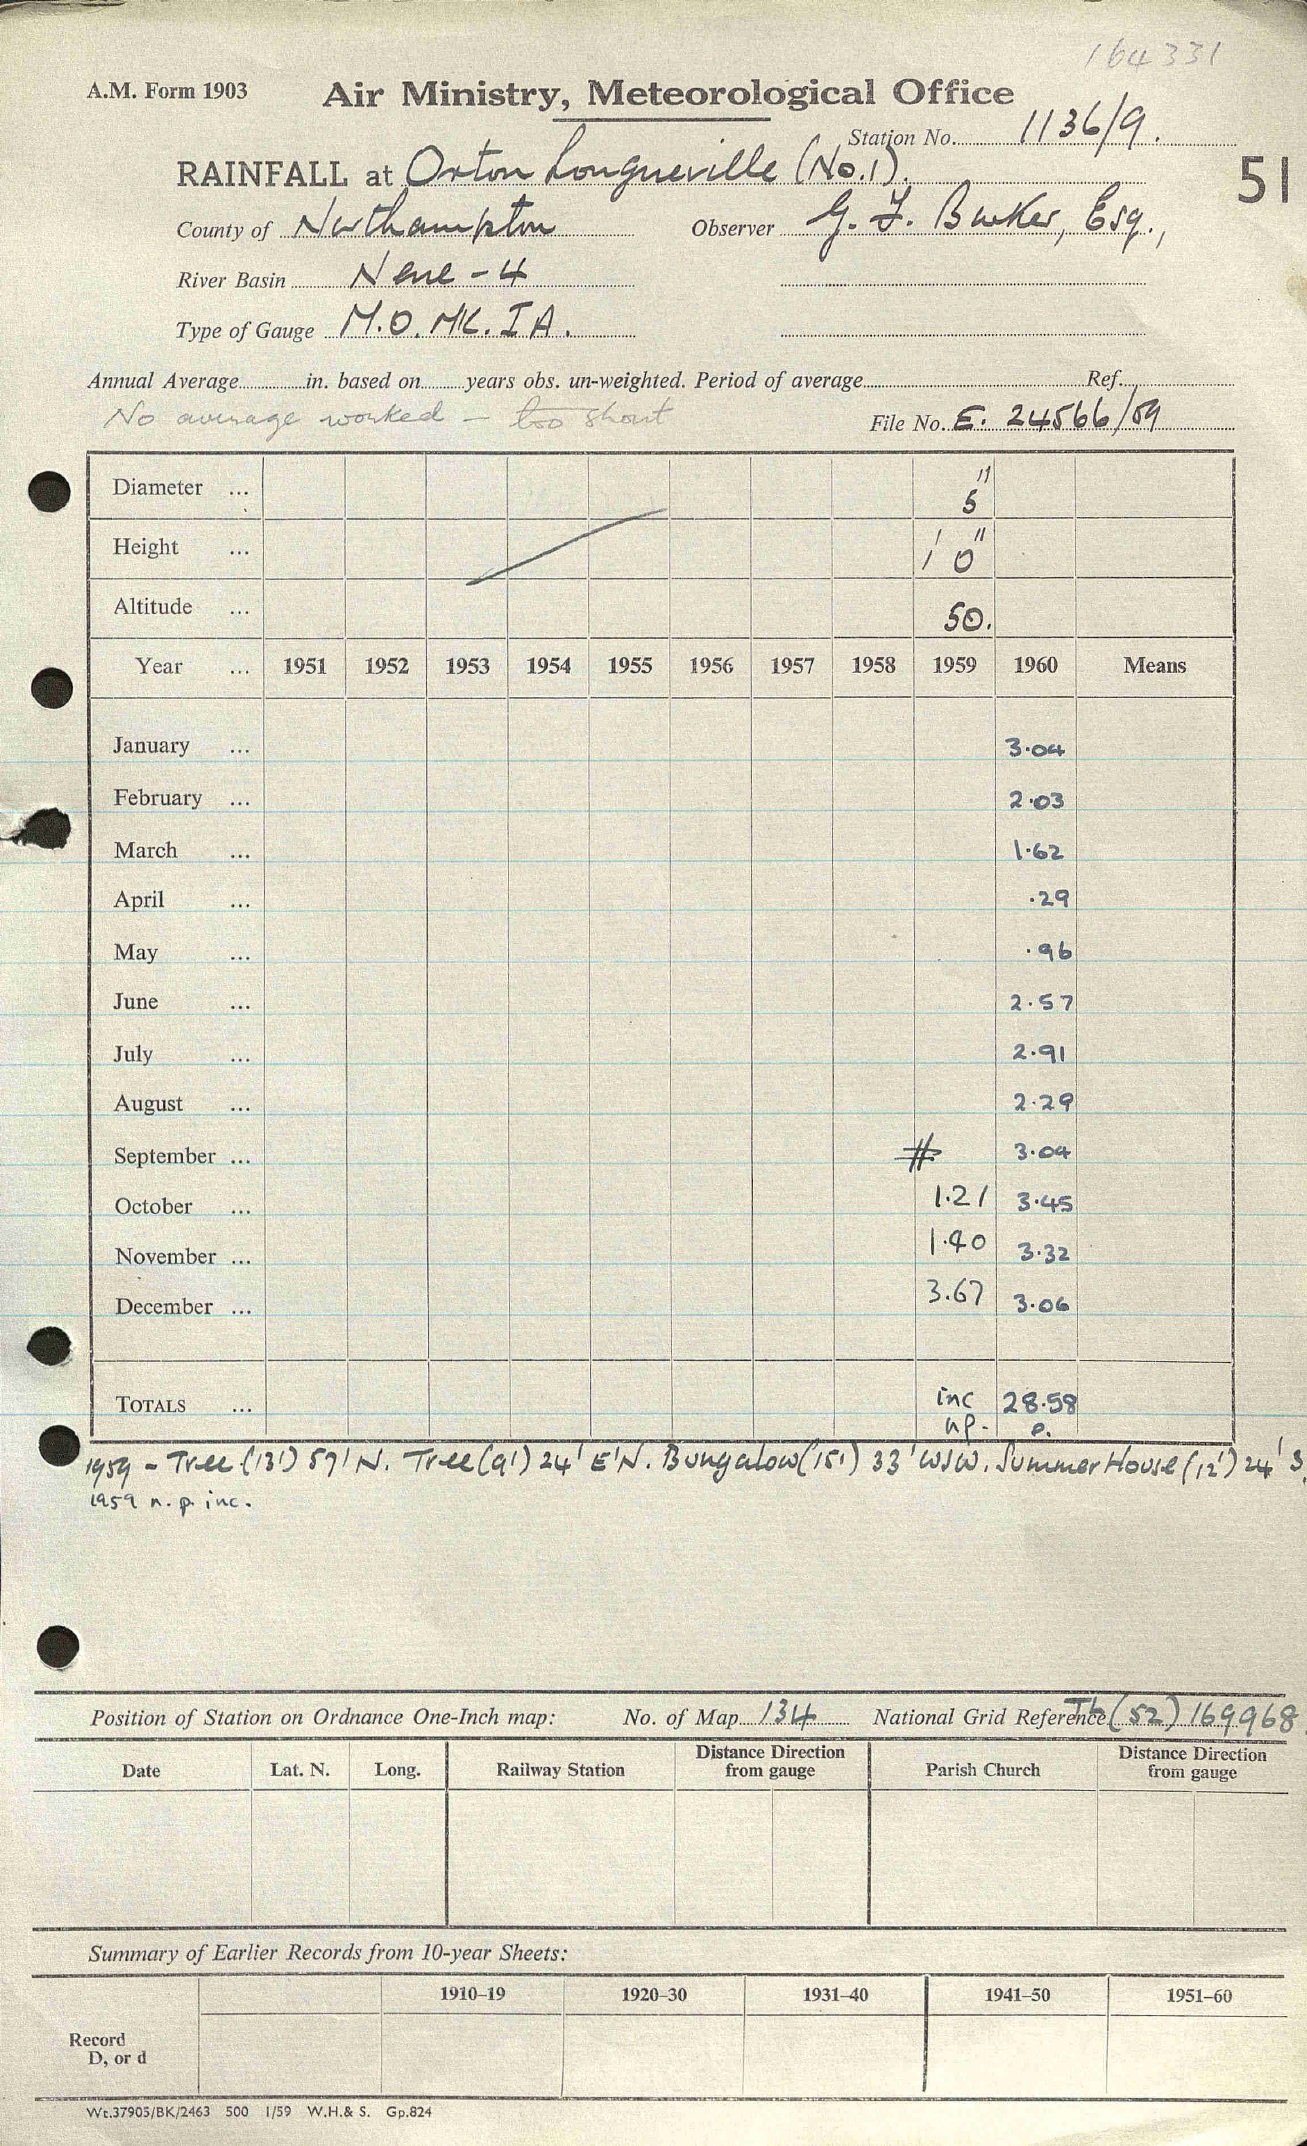 164331
A.M. Form 1903 Air Ministry, Meteorological Office
Station No. 1136/9.
RAINFALL at Orton Longueville (No.1). 51
County of Northampton Observer G. F. Barker, Esq.,
River Basin Nene - 4
Type of Gauge M.O. MK. IA.
Annual Average in. based on years obs. un-weighted. Period of average Ref.
No average worked - too short File No. E. 24566/59
Diameter ... 5"
Height ... 1' 0"
Altitude ... 50.
Year ... 1951 1952 1953 1954 1955 1956 1957 1958 1959 1960 Means
January ... 3.04
February ... 2.03
March ... 1.62
April ... .29
May ... .96
June ... 2.57
July ... 2.91
August ... 2.29
September ... # 3.04
October ... 1.21 3.45
November ... 1.40 3.32
December ... 3.67 3.06
TOTALS ... inc 28.58
np. e.
1959 - Tree (13') 59' N. Tree (9') 24' E'N. Bungalow (15') 33' WSW. Summer House (12') 24' S.
1959 n.p. inc.
Position of Station on Ordnance One-Inch map: No. of Map 134 National Grid Reference (52) 169968
Date Lat. N. Long. Railway Station Distance Direction from gauge Parish Church Distance Direction from gauge
Summary of Earlier Records from 10-year Sheets:
1910–19 1920–30 1931–40 1941–50 1951–60
Record
D, or d
Wt.37905/BK/2463 500 1/59 W.H.& S. Gp.824